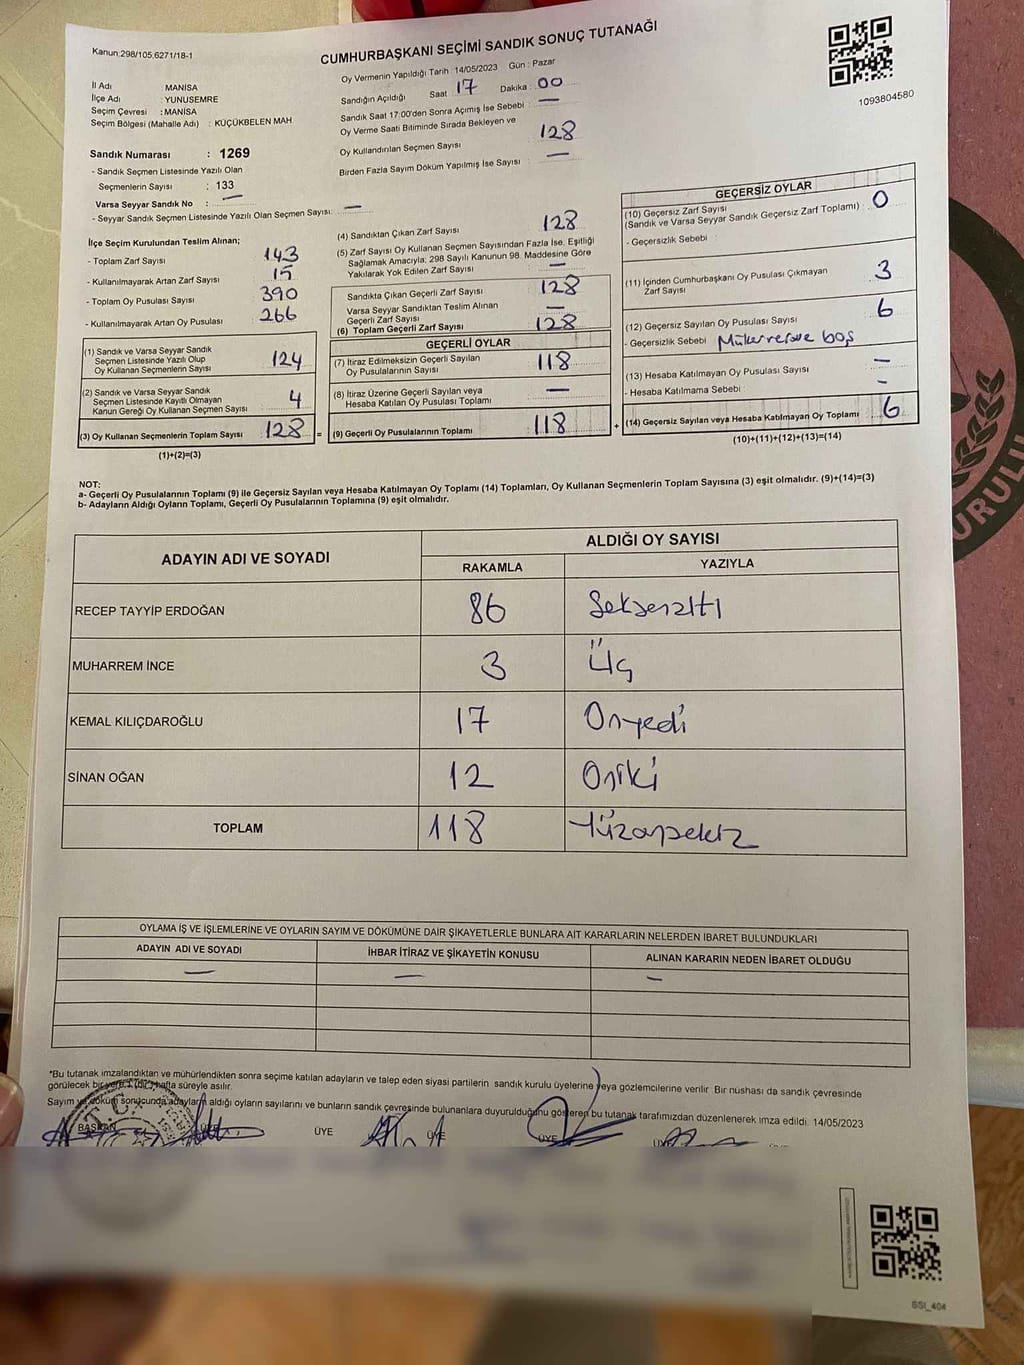 Kanun:298/105,6271/18-1
CUMHURBAŞKANI SEÇİMİ SANDIK SONUÇ TUTANAĞI
1093804580
İl Adı : MANİSA
İlçe Adı : YUNUSEMRE
Seçim Çevresi : MANİSA
Seçim Bölgesi (Mahalle Adı) : KÜÇÜKBELEN MAH.
Sandık Numarası : 1269
- Sandık Seçmen Listesinde Yazılı Olan
Seçmenlerin Sayısı : 133
Varsa Seyyar Sandık No : —
- Seyyar Sandık Seçmen Listesinde Yazılı Olan Seçmen Sayısı: —
Oy Vermenin Yapıldığı Tarih : 14/05/2023 Gün : Pazar
Sandığın Açıldığı Saat 17 Dakika : 00
Sandık Saat 17:00'den Sonra Açımış İse Sebebi : —
Oy Verme Saati Bitiminde Sırada Bekleyen ve
Oy Kullandırılan Seçmen Sayısı 128
Birden Fazla Sayım Döküm Yapılmış İse Sayısı —
İlçe Seçim Kurulundan Teslim Alınan;
- Toplam Zarf Sayısı 143
- Kullanılmayarak Artan Zarf Sayısı 15
- Toplam Oy Pusulası Sayısı 390
- Kullanılmayarak Artan Oy Pusulası 266
(1) Sandık ve Varsa Seyyar Sandık
Seçmen Listesinde Yazılı Olup
Oy Kullanan Seçmenlerin Sayısı 124
(2) Sandık ve Varsa Seyyar Sandık
Seçmen Listesinde Kayıtlı Olmayan
Kanun Gereği Oy Kullanan Seçmen Sayısı 4
(3) Oy Kullanan Seçmenlerin Toplam Sayısı 128 =
(1)+(2)=(3)
(4) Sandıktan Çıkan Zarf Sayısı 128
(5) Zarf Sayısı Oy Kullanan Seçmen Sayısından Fazla İse, Eşitliği
Sağlamak Amacıyla; 298 Sayılı Kanunun 98. Maddesine Göre
Yakılarak Yok Edilen Zarf Sayısı —
Sandıkta Çıkan Geçerli Zarf Sayısı 128
Varsa Seyyar Sandıktan Teslim Alınan
Geçerli Zarf Sayısı —
(6) Toplam Geçerli Zarf Sayısı 128
GEÇERLİ OYLAR
(7) İtiraz Edilmeksizin Geçerli Sayılan
Oy Pusulalarının Sayısı 118
(8) İtiraz Üzerine Geçerli Sayılan veya
Hesaba Katılan Oy Pusulası Toplamı —
(9) Geçerli Oy Pusulalarının Toplamı 118 +
GEÇERSİZ OYLAR
(10) Geçersiz Zarf Sayısı
(Sandık ve Varsa Seyyar Sandık Geçersiz Zarf Toplamı) : 0
- Geçersizlik Sebebi
(11) İçinden Cumhurbaşkanı Oy Pusulası Çıkmayan
Zarf Sayısı 3
(12) Geçersiz Sayılan Oy Pusulası Sayısı 6
- Geçersizlik Sebebi Mükerrer ve boş
(13) Hesaba Katılmayan Oy Pusulası Sayısı —
- Hesaba Katılmama Sebebi : -
(14) Geçersiz Sayılan veya Hesaba Katılmayan Oy Toplamı 6
(10)+(11)+(12)+(13)=(14)
NOT:
a- Geçerli Oy Pusulalarının Toplamı (9) ile Geçersiz Sayılan veya Hesaba Katılmayan Oy Toplamı (14) Toplamları, Oy Kullanan Seçmenlerin Toplam Sayısına (3) eşit olmalıdır. (9)+(14)=(3)
b- Adayların Aldığı Oyların Toplamı, Geçerli Oy Pusulalarının Toplamına (9) eşit olmalıdır.
URULU
ADAYIN ADI VE SOYADI
ALDIĞI OY SAYISI
RAKAMLA YAZIYLA
RECEP TAYYİP ERDOĞAN 86 Seksenaltı
MUHARREM İNCE 3 Üç
KEMAL KILIÇDAROĞLU 17 Onyedi
SİNAN OĞAN 12 Oniki
TOPLAM 118 Yüzonsekiz
OYLAMA İŞ VE İŞLEMLERİNE VE OYLARIN SAYIM VE DÖKÜMÜNE DAİR ŞİKAYETLERLE BUNLARA AİT KARARLARIN NELERDEN İBARET BULUNDUKLARI
ADAYIN ADI VE SOYADI İHBAR İTİRAZ VE ŞİKAYETİN KONUSU ALINAN KARARIN NEDEN İBARET OLDUĞU
— — —
*Bu tutanak imzalandıktan ve mühürlendikten sonra seçime katılan adayların ve talep eden siyasi partilerin sandık kurulu üyelerine veya gözlemcilerine verilir. Bir nüshası da sandık çevresinde
görülecek bir yere 1 (bir) hafta süreyle asılır.
Sayım ve döküm sonucunda adayların aldığı oyların sayılarını ve bunların sandık çevresinde bulunanlara duyurulduğunu gösteren bu tutanak tarafımızdan düzenlenerek imza edildi. 14/05/2023
BAŞKAN ÜYE ÜYE ÜYE ÜYE
T.C.
SSI_404